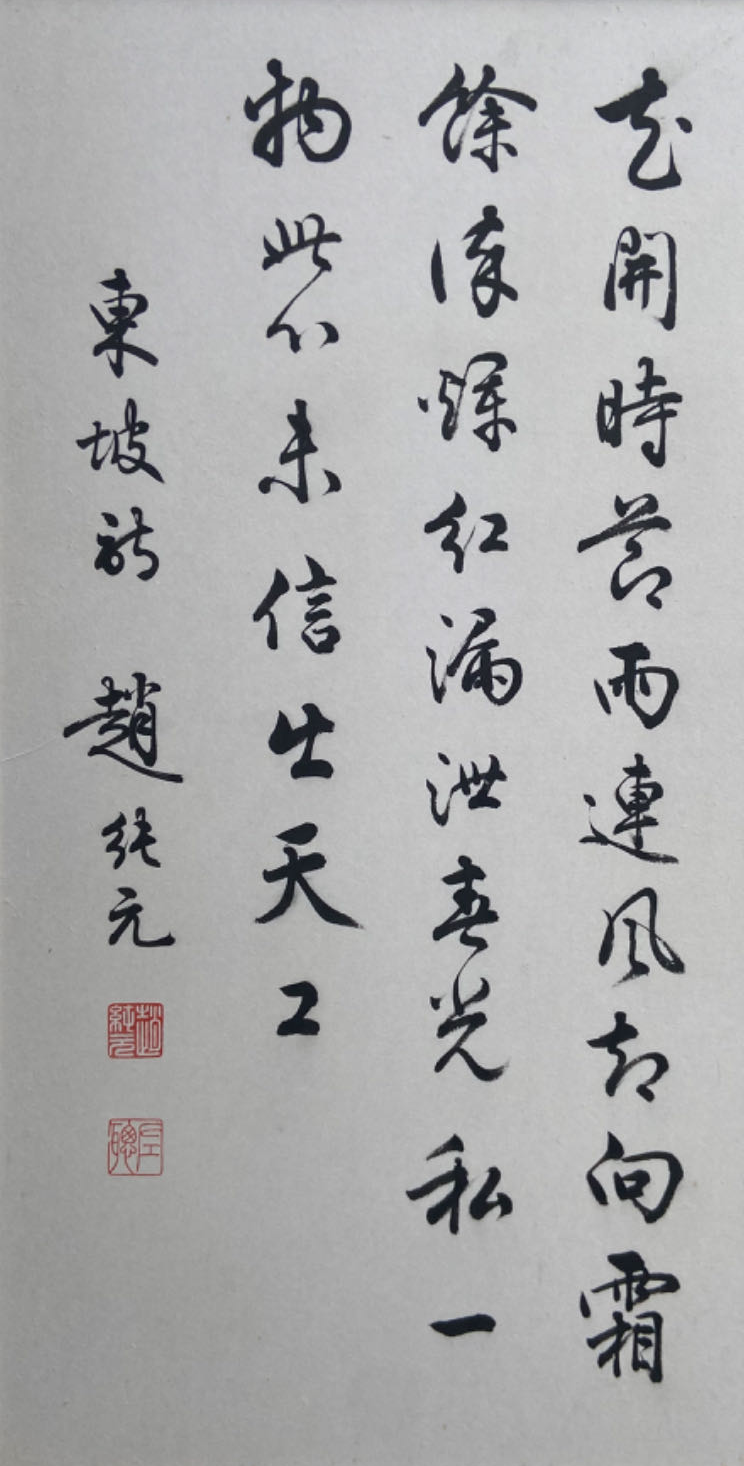 花開時節雨連風却向霜
餘染爛紅漏泄春光私一
物此心未信出天工
東坡詩 趙純元
趙純元